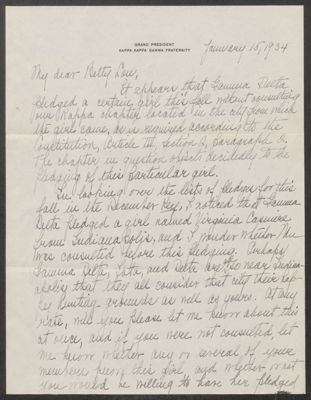 GRAND PRESIDENT
KAPPA KAPPA GAMMA FRATERNITY
January 15, 1934
My dear Betty Lou,
It appears that Gamma Delta
pledged a certain girl this fall without consulting
your Kappa chapter located in the city from which
the girl came, as is required according to the
Constitution, Article III, section 2, paragraph 2.
The chapter in question objects decidedly to the
pledging of this particular girl.
In looking over the lists of pledges for this
fall in the December Key, I noticed that Gamma
Delta pledged a girl named Virginia
from Indianapolis, and I wonder whether Mu
was consulted before this pledging. Perhaps
Gamma Delta, Iota, and Delta are so near Indian-
apolis that they all consider that city their
hunting grounds as well as yours. At any
rate, will you please let me know about this
at once, and if you were not consulted, let
me know whether any or several of your
members know this girl and whether or not
you would be willing to have her pledged